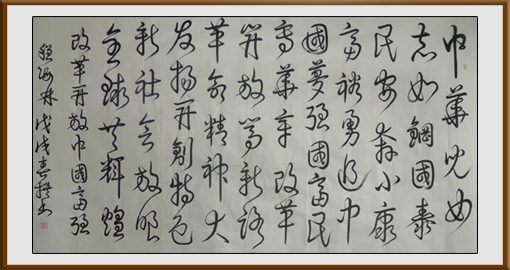 中華兒女
志如鋼國泰
民安奔小康
富裕勇迈中
國夢强國富民
寫華章改革
开放新路
革命精神大
发扬开創特色
新社会放眼
全球共輝煌
改革开放中國富强
海林戊戌春撰书